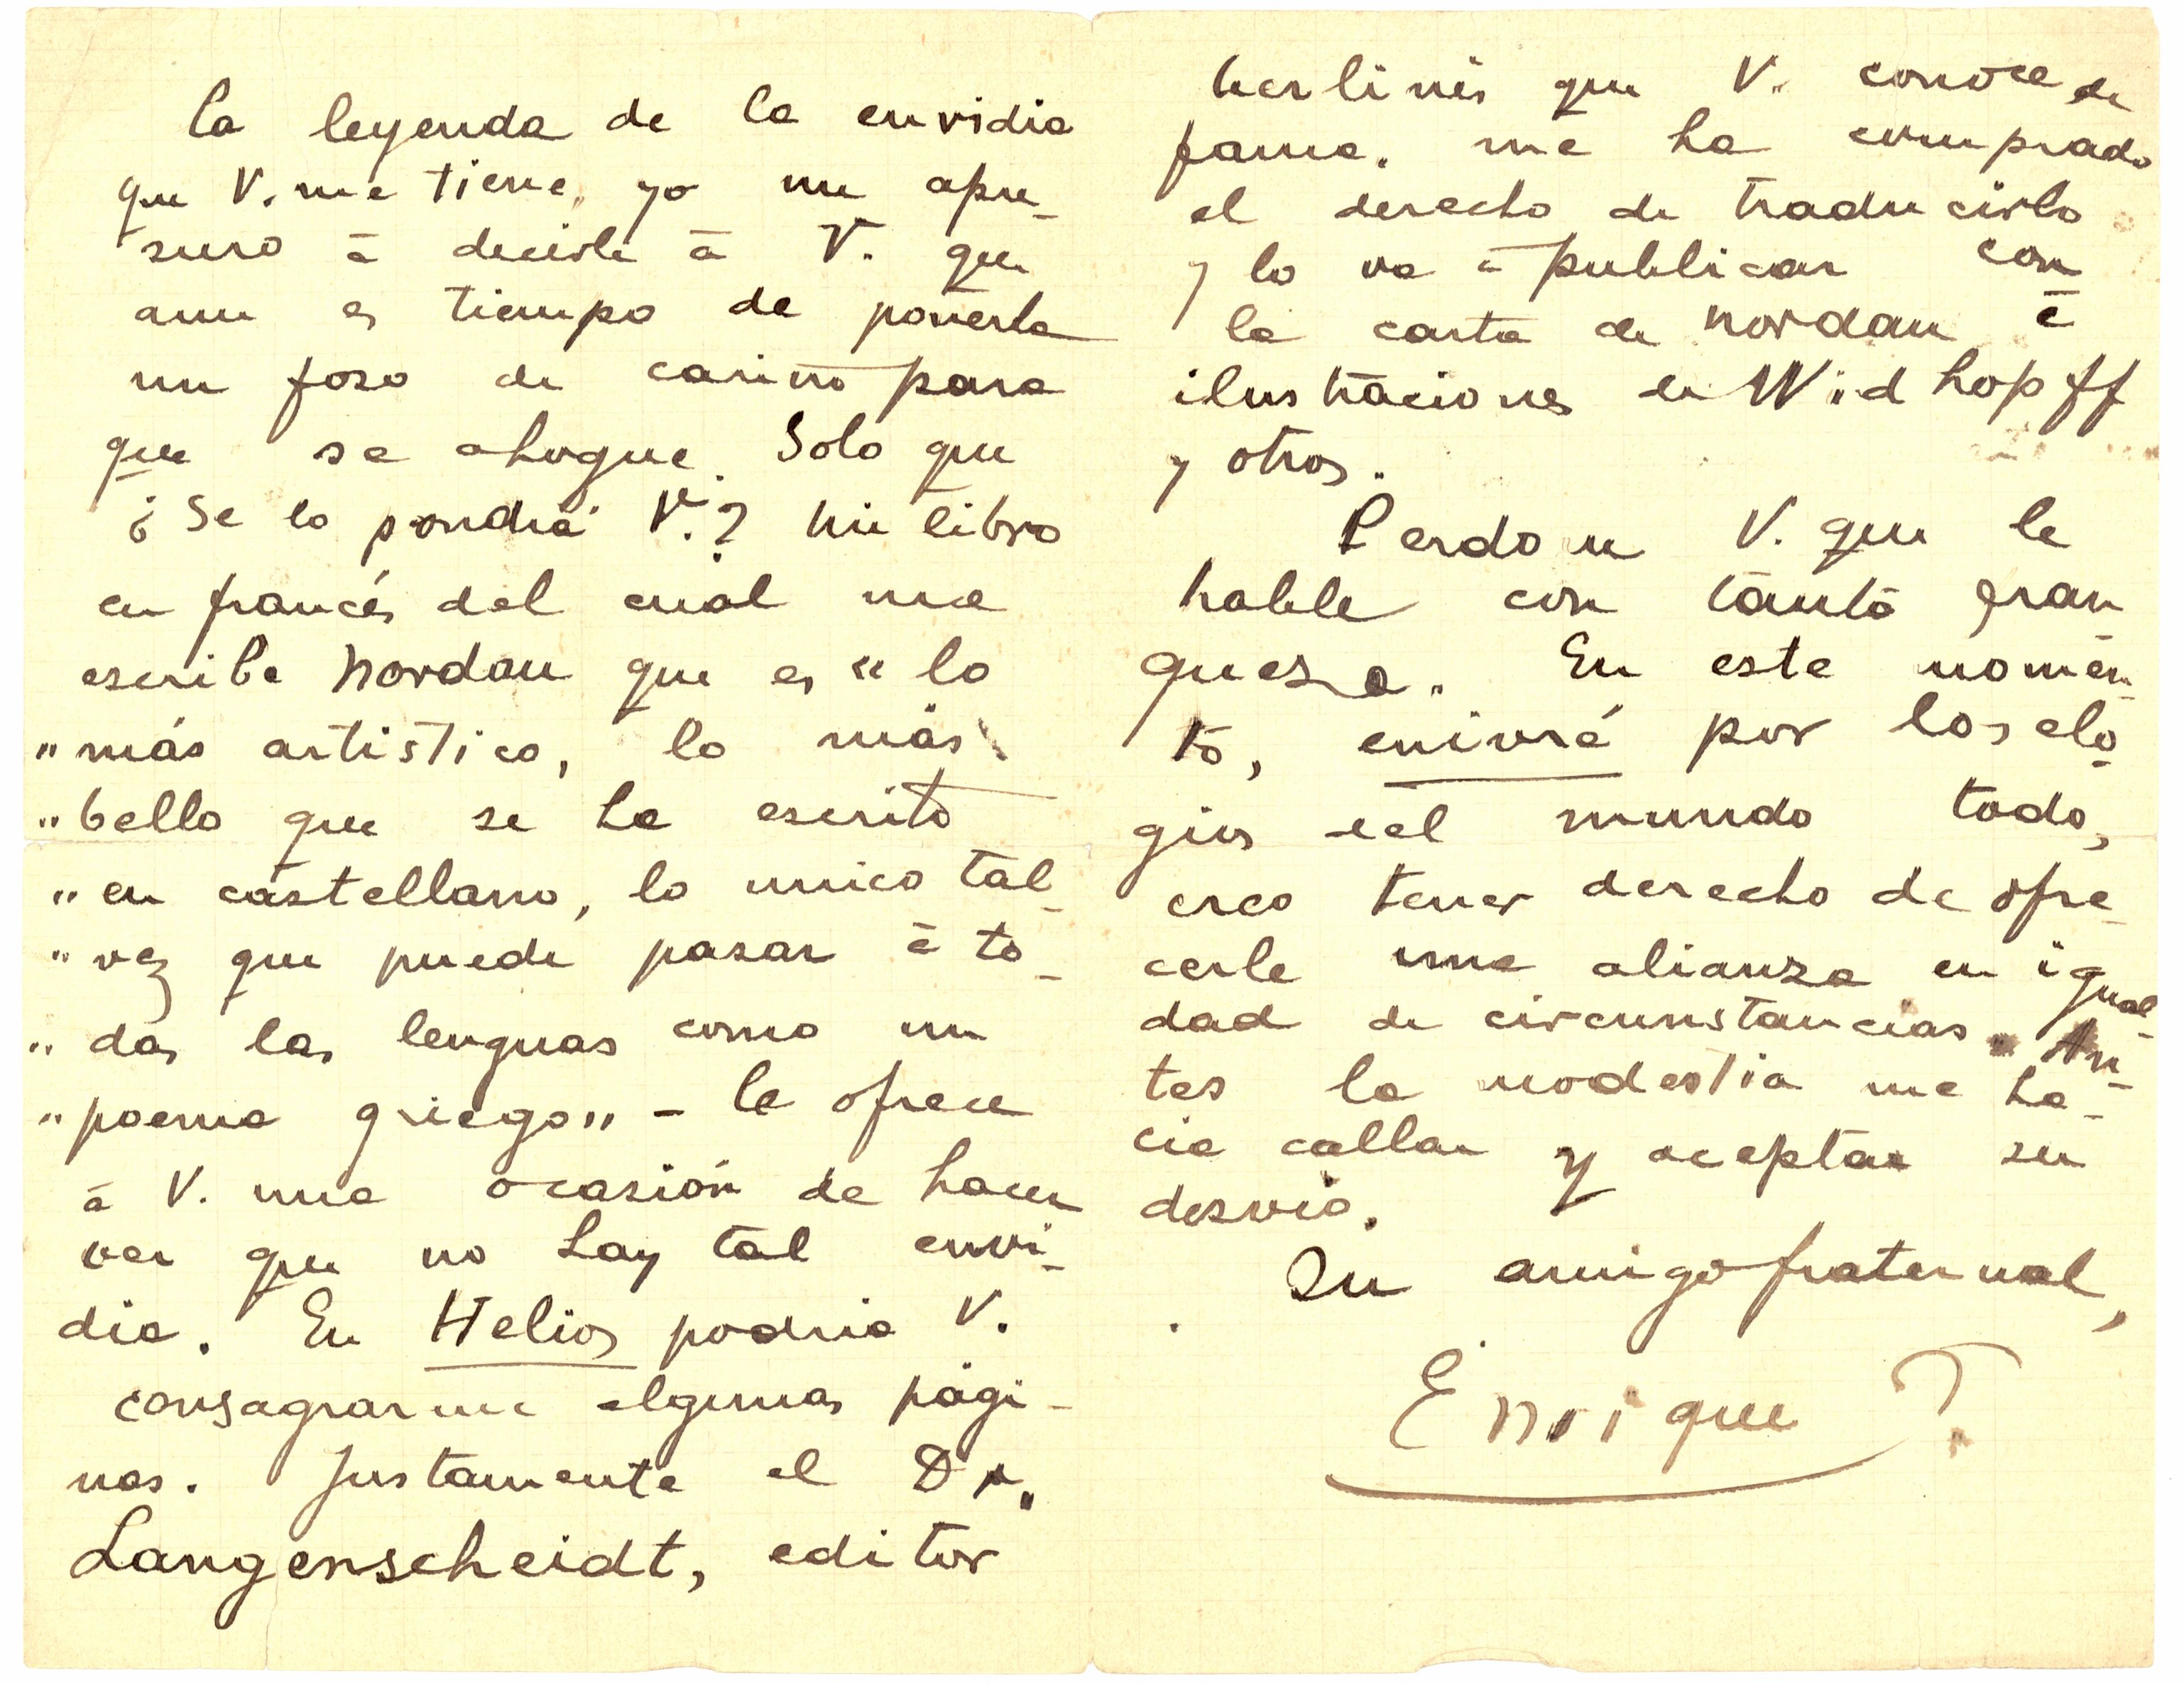 la leyenda de la envidia
que V. me tiene, yo me apre-
suro á decirle á V. que
aun es tiempo de ponerla
un foso de cariño para
que se ahogue. Solo que
¿Se lo pondrá V.? Mi libro
en francés del cual me
escribe Nordau que es "lo
"más artistico, lo más
"bello que se ha escrito
"en castellano, lo unico tal-
"vez que puede pasar á to-
"das las lenguas como un
"poema griego" - le ofrece
á V. una ocasión de hacer
ver que no hay tal envi-
dia. En Helios podria V.
consagrarme algunas pági-
nas. Justamente el Dr.
Langenscheidt, editor
berlinés que V. conoce de
fama. me ha comprado
el derecho de traducirlo
y lo va á publicar con
la carta de Nordau é
ilustraciones de Widhopff
y otros.
Perdone V. que le
hable con tanta fran
queza. En este momen-
to, enivré por los elo-
gios del mundo todo,
creo tener derecho de ofre-
cerle una alianza en igual-
dad de circunstancias. An-
tes la modestia me ha-
cia callar y aceptar su
desvio.
Su amigo fraternal,
Enrique